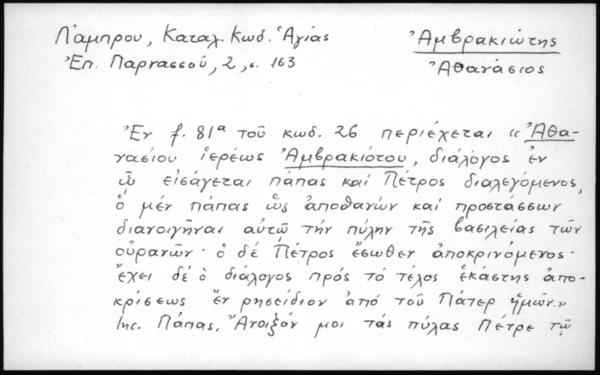 Λάμπρου, Καταλ. Κωδ. Ἁγίας
Ἐπ. Παρνασσοῦ, 2, σ. 163
Ἀμβρακιώτης
Ἀθανάσιος
Ἐν f. 81α τοῦ κωδ. 26 περιέχεται «Ἀθα-
νασίου ἱερέως Ἀμβρακιότου, διάλογος ἐν
ᾧ εἰσάγεται πάπας καί Πέτρος διαλεγόμενος,
ὁ μέν πάπας ὡς ἀποθανών καί προστάσσων
διανοιγῆναι αὐτῷ τήν πύλην τῆς βασιλείας τῶν
οὐρανῶν· ὁ δέ Πέτρος ἔσωθεν ἀποκρινόμενος·
ἔχει δέ ὁ διάλογος πρός τό τέλος ἑκάστης ἀπο-
κρίσεως ἕν ρησείδιον ἀπό τοῦ Πάτερ ἡμῶν.»
Inc. Πάπας. Ἄνοιξόν μοι τάς πύλας Πέτρε τῷ